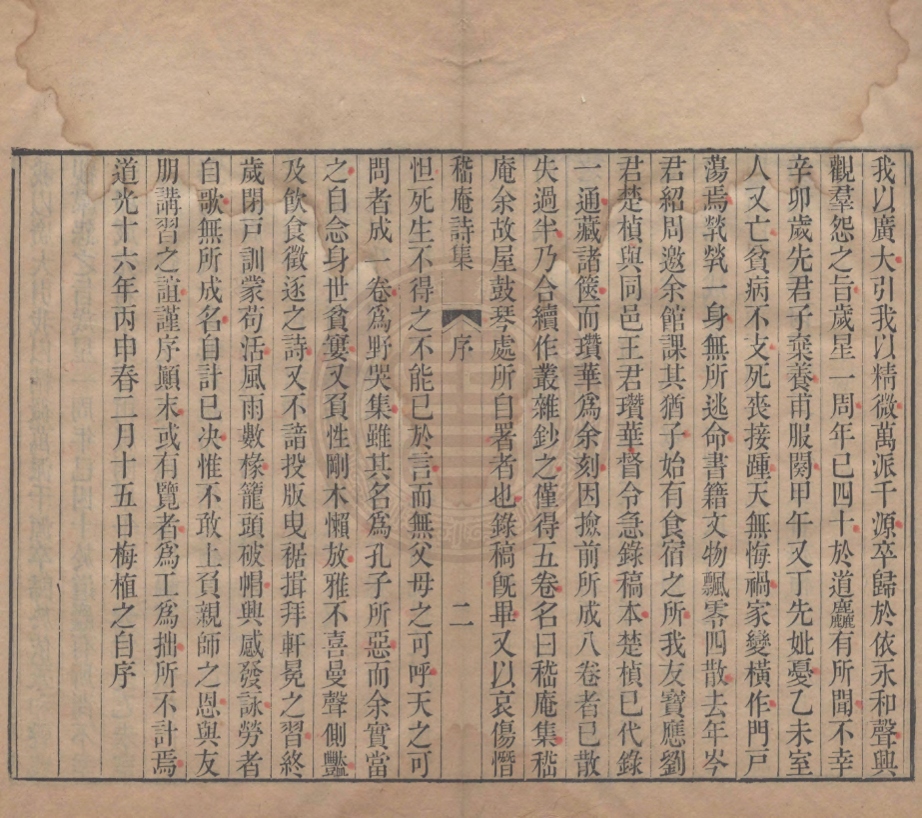 我以廣大引我以精微萬派千源卒歸於依永和聲興
觀羣怨之旨歲星一周年已四十於道麤有所聞不幸
辛卯歲先君子棄養甫服闋甲午又丁先妣憂乙未室
人又亡貧病不支死喪接踵天無悔禍家變橫作門戸
蕩焉煢煢一身無所逃命書籍文物飄零四散去年岑
君紹周邀余館課其猶子始有食宿之所我友寶應劉
君楚楨與同邑王君瓚華督令急錄稿本楚楨已代錄
一通藏諸篋而瓚華為余刻因撿前所成八卷者已散
失過半乃合續作叢雜鈔之僅得五卷名曰嵇庵集嵇
庵余故屋鼓琴處所自署者也錄稿旣畢又以哀傷憯
嵇庵詩集 序 二
怛死生不得之不能已於言而無父母之可呼天之可
問者成一卷爲野哭集雖其名爲孔子所惡而余實當
之自念身世貧窶又負性剛木懶放雅不喜曼聲側豔
及飮食徵逐之詩又不諳投版曳裾揖拜軒冕之習終
歲閉戸訓蒙苟活風雨數椽籠頭破帽興感發詠勞者
自歌無所成名自計已决惟不敢上負親師之恩與友
朋講習之誼謹序顚末或有覽者爲工爲拙所不計焉
道光十六年丙申春二月十五日梅植之自序